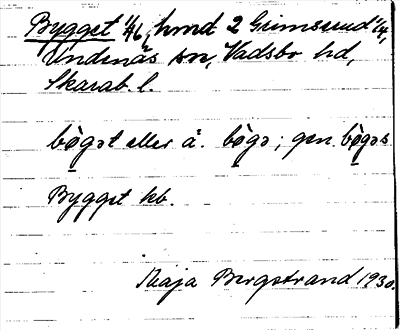 Bygget 1/16, hmd 2 Grimsrud 1/4,
Undenäs sn, Vadsbo hd,
Skarab. l.
bø̀gət eller å. bø̀gə; gen. bø̀gəs
Bygget kb.
Maja Bergstrand 1930.